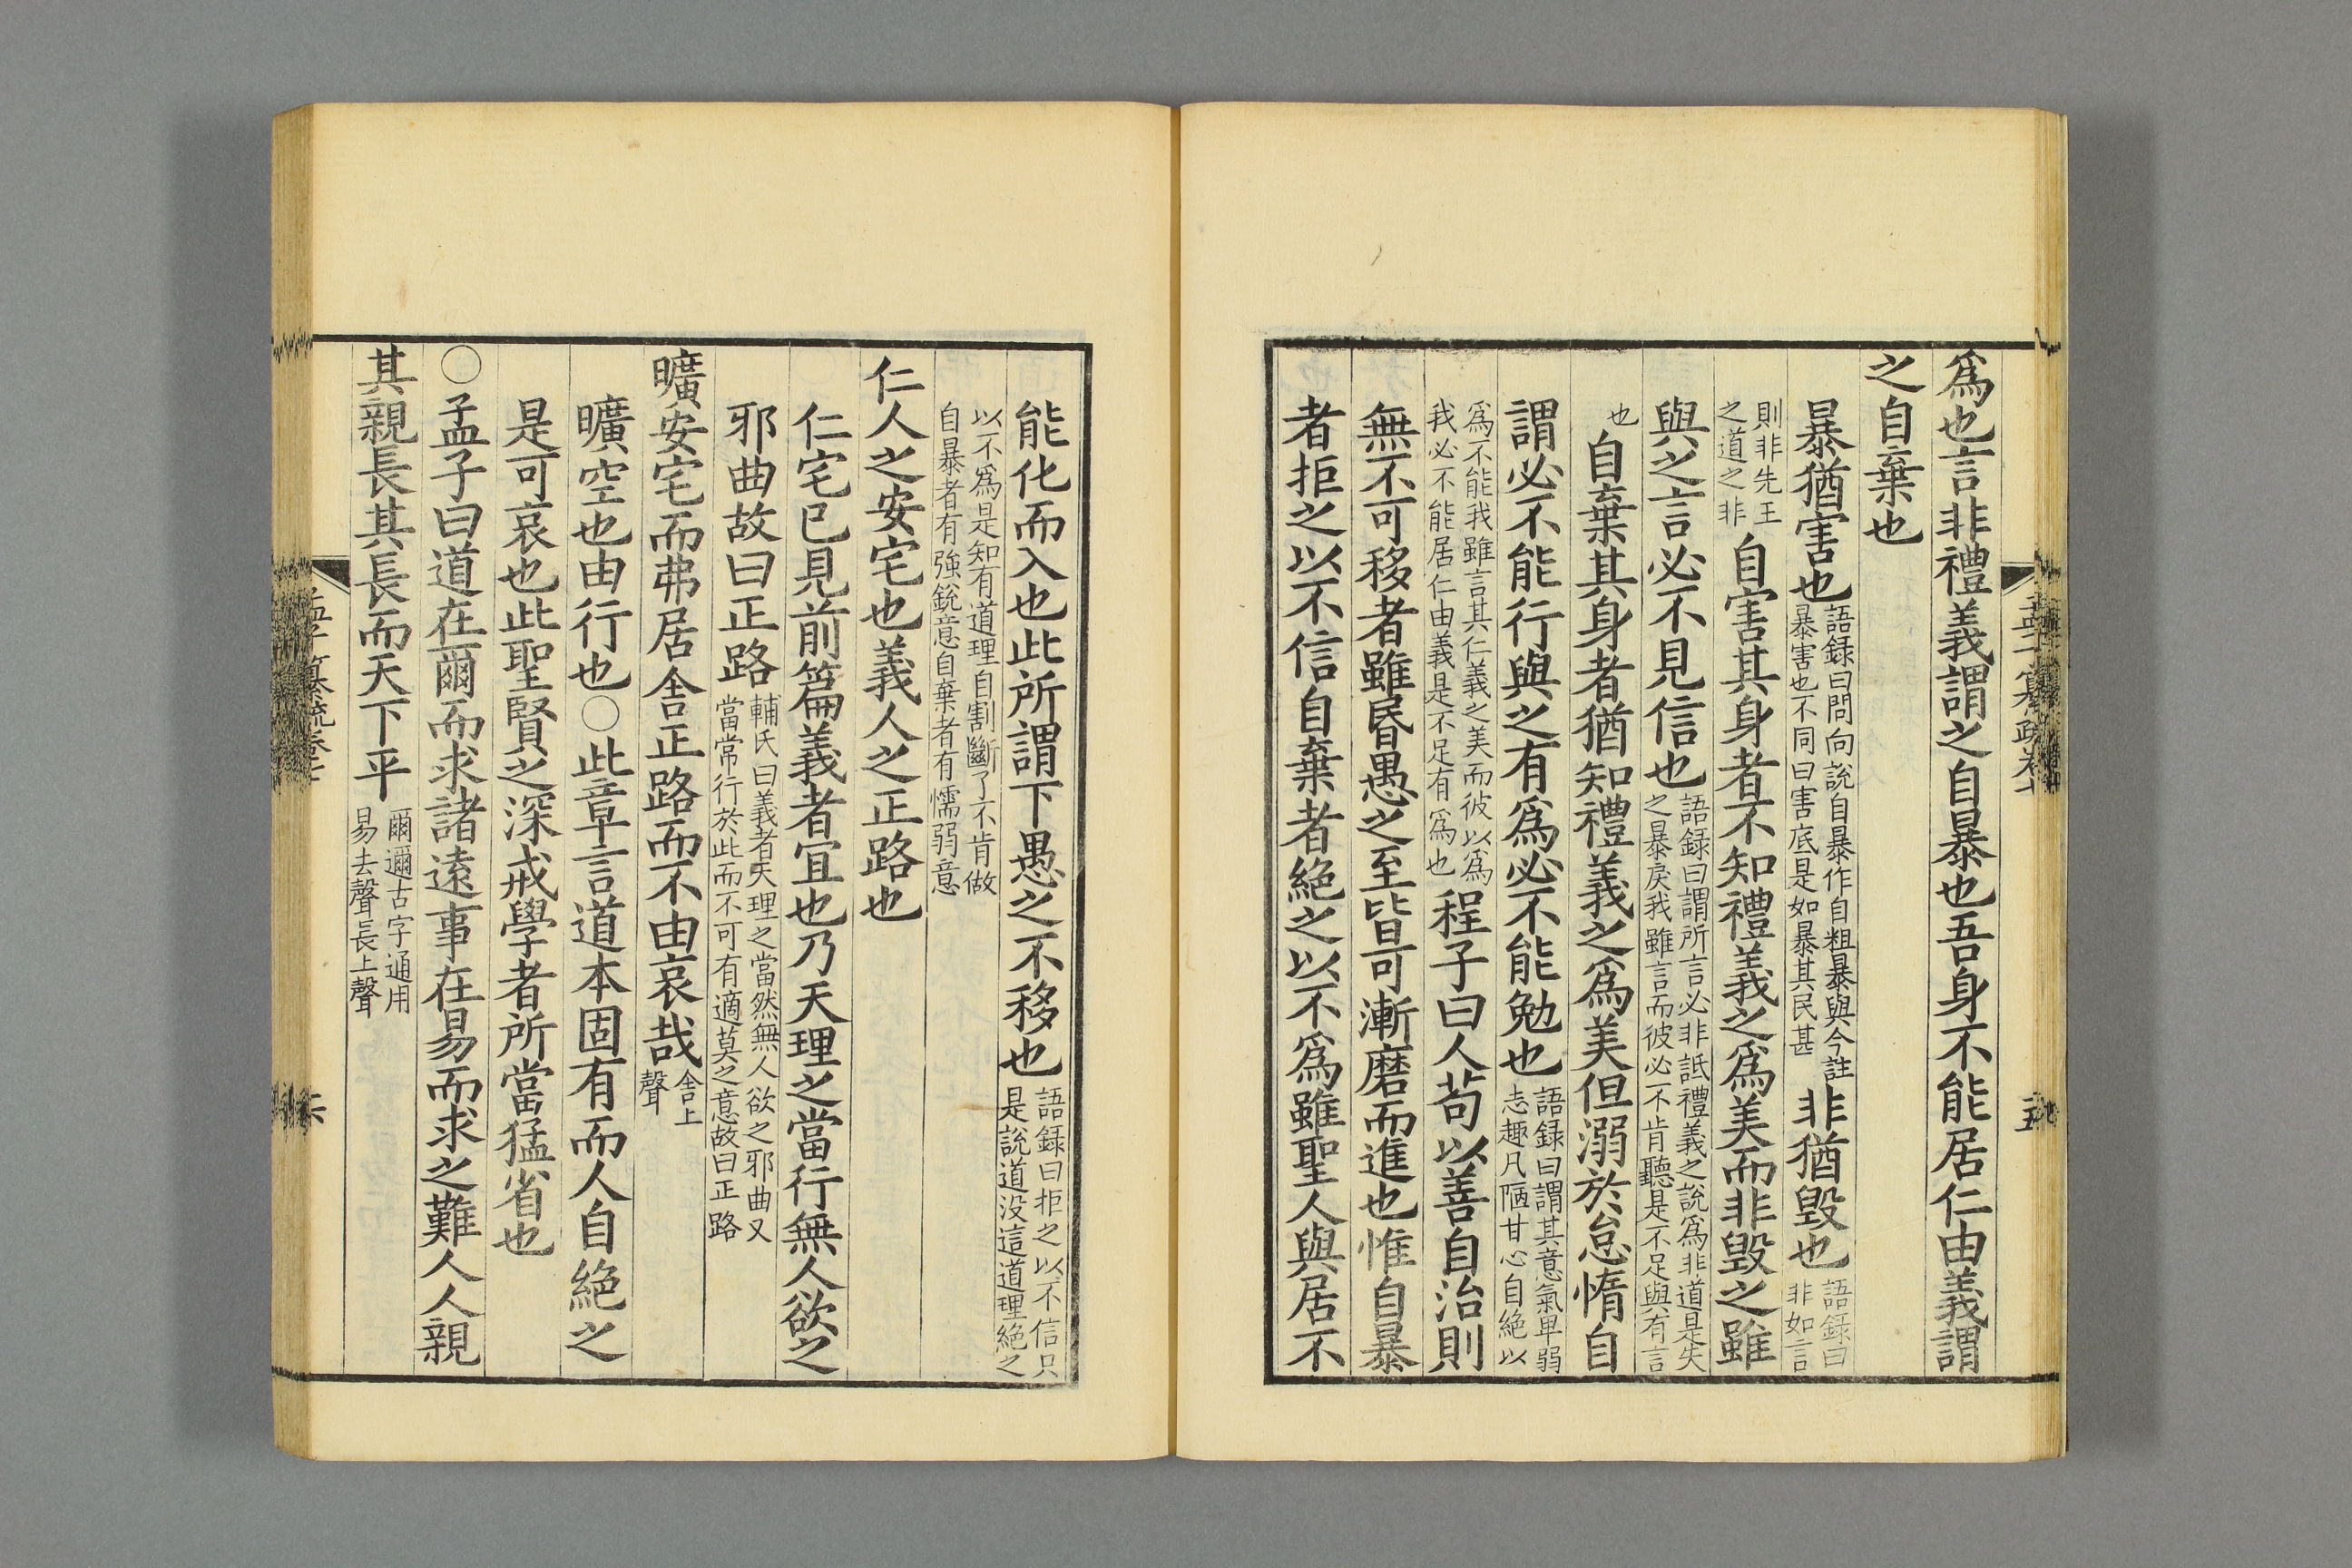 爲也言非禮義謂之自暴也吾身不能居仁由義謂
之自棄也
暴猶害也語録曰問向說自暴作自粗暴與今註暴害也不同曰害底是如暴其民甚非猶毀也語録曰非如言
則非先王之道之非自害其身者不知禮義之爲美而非毀之雖
與之言必不見信也語録曰謂所言必非詆禮義之說爲非道是失之暴戾我雖言而彼必不肯聽是不足與有言
也自棄其身者猶知禮義之爲美但溺於怠惰自
謂必不能行與之有爲必不能勉也語録曰謂其意氣卑弱志趣凡陋甘心自絶以
爲不能我雖言其仁義之美而彼以爲我必不能居仁由義是不足有爲也程子曰人苟以善自治則
無不可移者雖昬愚之至皆可漸磨而進也惟自暴
者拒之以不信自棄者絶之以不爲雖聖人與居不
能化而入也此所謂下愚之不移也語録曰拒之以不信只是說道没這道理絶之
以不爲是知有道理自割斷了不肯做自暴者有強銳意自棄者有懦弱意
仁人之安宅也義人之正路也
仁宅已見前篇義者宜也乃天理之當行無人欲之
邪曲故曰正路輔氏曰義者天理之當然無人欲之邪曲又當常行於此而不可有適莫之意故曰正路
曠安宅而弗居舍正路而不由哀哉舍上聲
曠空也由行也○此章言道本固有而人自絶之
是可哀也此聖賢之深戒學者所當猛省也
○孟子曰道在爾而求諸遠事在易而求之難人人親
其親長其長而天下平爾邇古字通用易去聲長上聲